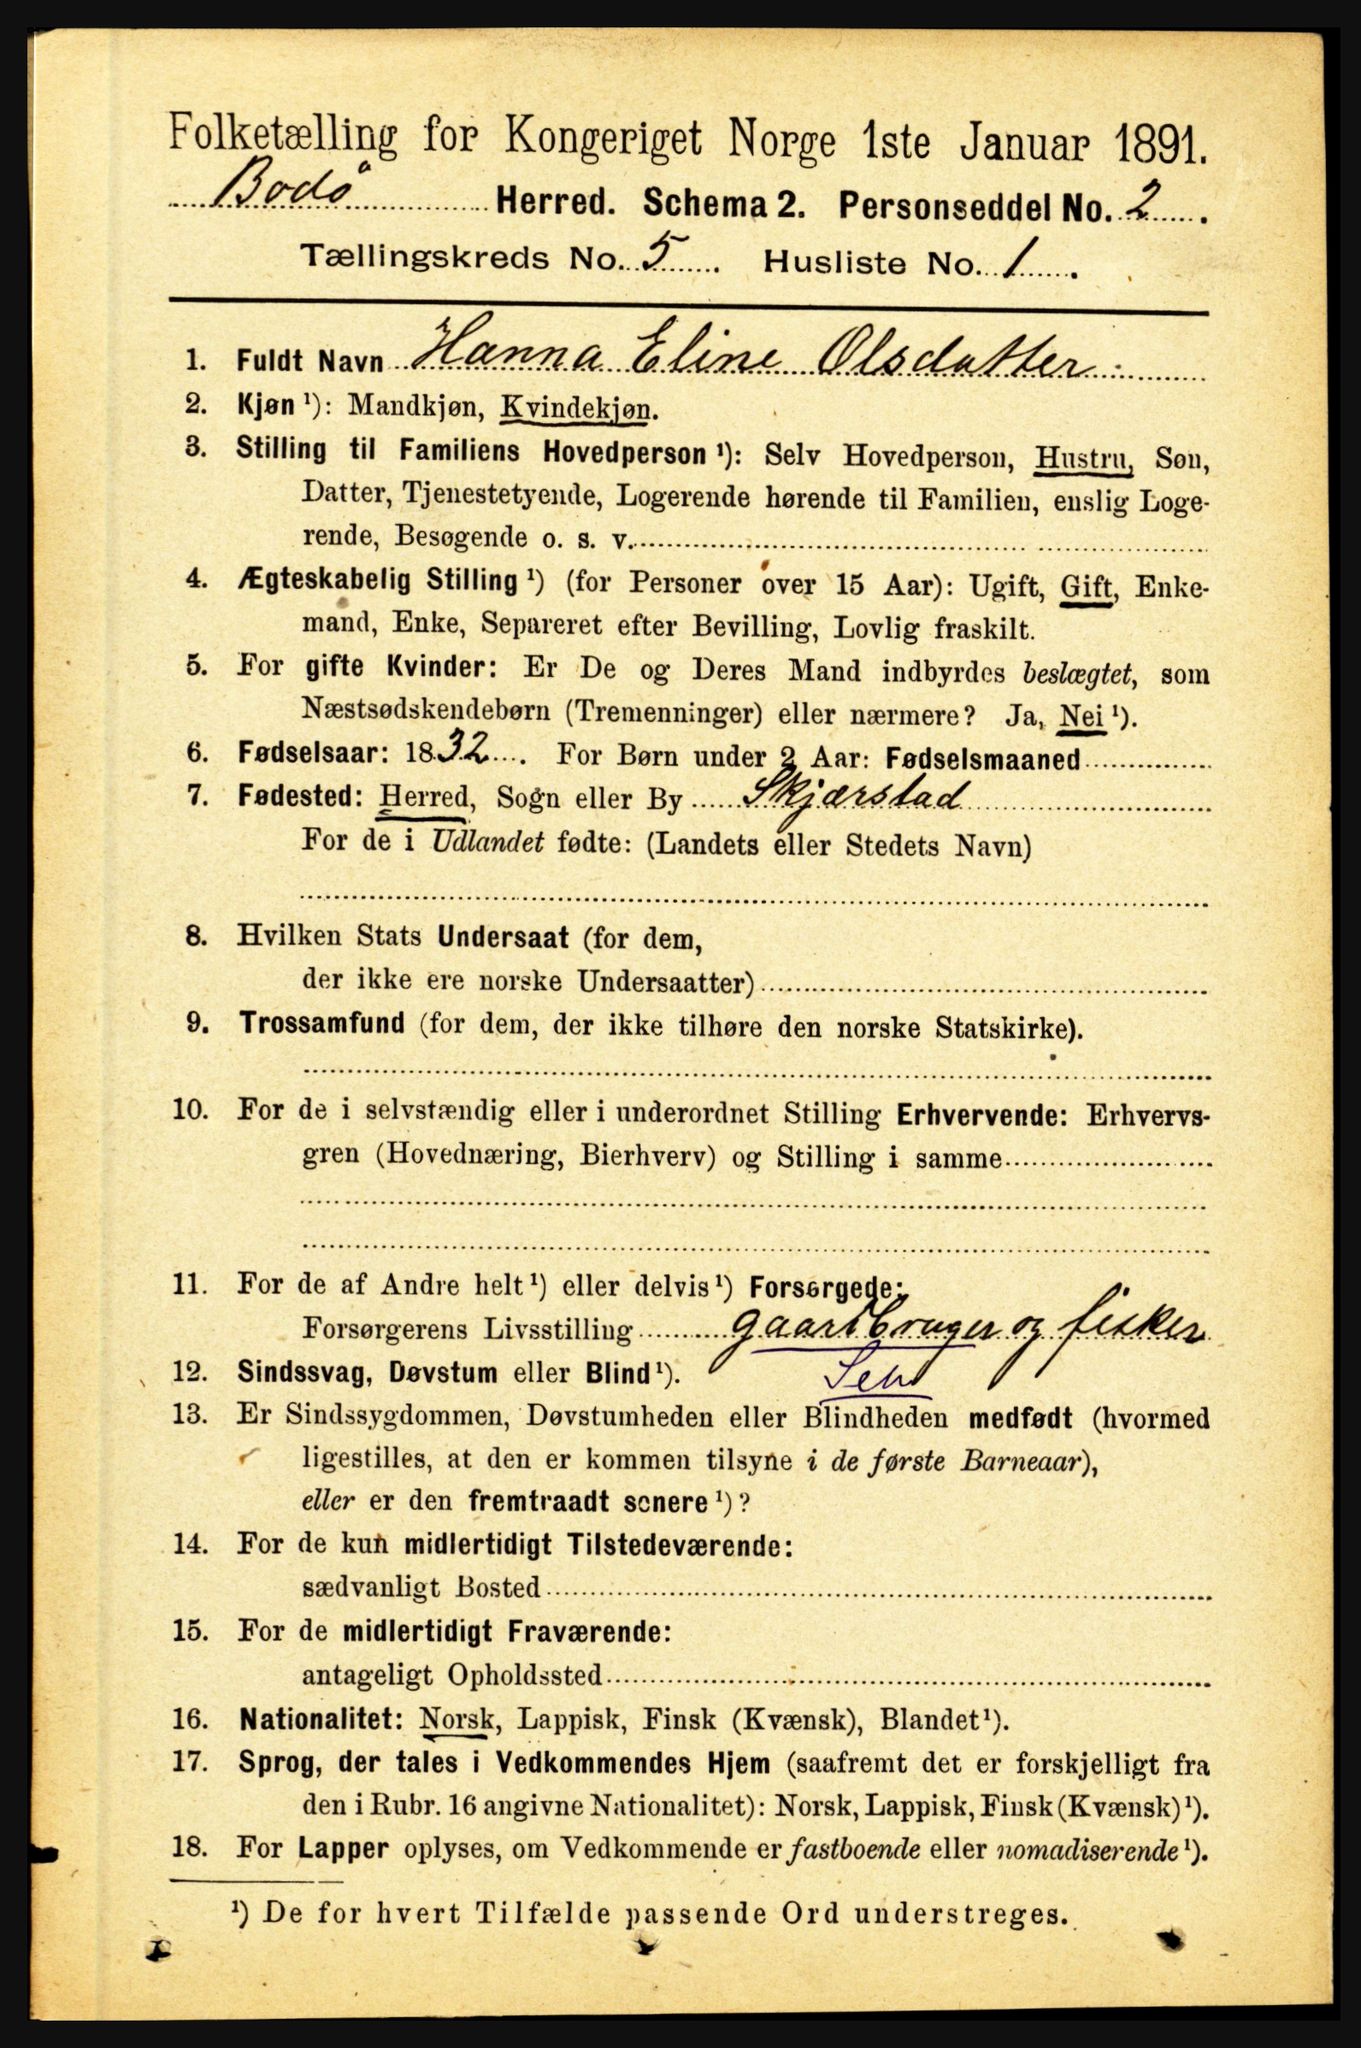 Folketælling for Kongeriget Norge 1ste Januar 1891.
Bodø Herred. Schema 2. Personseddel No. 2.
Tællingskreds No. 5. Husliste No. 1.
1. Fuldt Navn Hanna Eline Olsdatter.
2. Kjøn¹): Mandkjøn, Kvindekjøn.
3. Stilling til Familiens Hovedperson¹): Selv Hovedperson, Hustru, Søn,
Datter, Tjenestetyende, Logerende hørende til Familien, enslig Loge-
rende, Besøgende o. s. v.
4. Ægteskabelig Stilling¹) (for Personer over 15 Aar): Ugift, Gift, Enke-
mand, Enke, Separeret efter Bevilling, Lovlig fraskilt.
5. For gifte Kvinder: Er De og Deres Mand indbyrdes beslægtet, som
Næstsødskendebørn (Tremenninger) eller nærmere? Ja, Nei¹).
6. Fødselsaar: 1832. For Børn under 2 Aar: Fødselsmaaned
7. Fødested: Herred, Sogn eller By Skjærstad
For de i Udlandet fødte: (Landets eller Stedets Navn)
8. Hvilken Stats Undersaat (for dem,
der ikke ere norske Undersaatter)
9. Trossamfund (for dem, der ikke tilhøre den norske Statskirke).
10. For de i selvstændig eller i underordnet Stilling Erhvervende: Erhvervs-
gren (Hovednæring, Bierhverv) og Stilling i samme
11. For de af Andre helt¹) eller delvis¹) Forsørgede:
Forsørgerens Livsstilling gaardbruger og fisker
12. Sindssvag, Døvstum eller Blind¹). Selv
13. Er Sindssygdommen, Døvstumheden eller Blindheden medfødt (hvormed
ligestilles, at den er kommen tilsyne i de første Barneaar),
eller er den fremtraadt senere¹)?
14. For de kun midlertidigt Tilstedeværende:
sædvanligt Bosted
15. For de midlertidigt Fraværende:
antageligt Opholdssted
16. Nationalitet: Norsk, Lappisk, Finsk (Kvænsk), Blandet¹).
17. Sprog, der tales i Vedkommendes Hjem (saafremt det er forskjelligt fra
den i Rubr. 16 angivne Nationalitet): Norsk, Lappisk, Finsk (Kvænsk)¹).
18. For Lapper oplyses, om Vedkommende er fastboende eller nomadiserende¹).
¹) De for hvert Tilfælde passende Ord understreges.